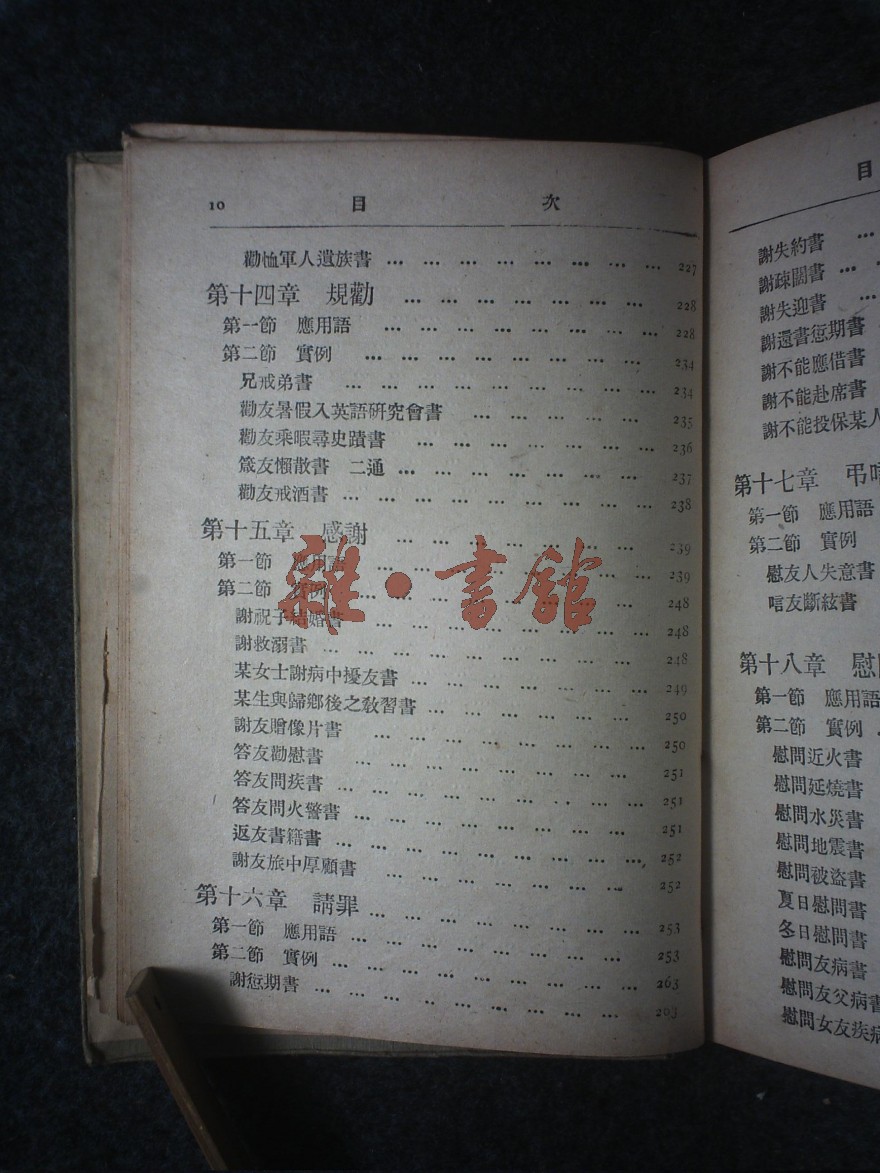 10 目 次
勸恤軍人遺族書 … … … … … … … … 227
第十四章 規勸 … … … … … … … 228
第一節 應用語 … … … … … … … … 228
第二節 實例 … … … … … … … … 234
兄戒弟書 … … … … … … … … … 234
勸友暑假入英語硏究會書 … … … … … 235
勸友乘暇尋史蹟書 … … … … … … … 236
箴友懶散書 二通 … … … … … … … 237
勸友戒酒書 … … … … … … … … … 238
第十五章 感謝 … … … … … … … 239
第一節 應用語 … … … … … … … 239
第二節 實例 … … … … … … … … 248
謝祝子結婚書 … … … … … … … … 248
謝救溺書 … … … … … … … … … 248
某女士謝病中擾友書 … … … … … … 249
某生與歸鄉後之敎習書 … … … … … … 250
謝友贈像片書 … … … … … … … … 250
答友勸慰書 … … … … … … … … … 251
答友問疾書 … … … … … … … … … 251
答友問火警書 … … … … … … … … 251
返友書籍書 … … … … … … … … … 252
謝友旅中厚顧書 … … … … … … … … 252
第十六章 請罪 … … … … … … … 253
第一節 應用語 … … … … … … … … 253
第二節 實例 … … … … … … … … 263
謝愆期書 … … … … … … … … … 263
雜·書館
目
謝失約書 …
謝疎闊書 … …
謝失迎書 …
謝還書愆期書
謝不能應借書
謝不能赴席書
謝不能投保某人
第十七章 弔唁
第一節 應用語
第二節 實例
慰友人失意書
唁友斷絃書
第十八章 慰問
第一節 應用語
第二節 實例
慰問近火書
慰問延燒書
慰問水災書
慰問地震書
慰問被盜書
夏日慰問書
冬日慰問書
慰問友病書
慰問友父病書
慰問女友疾病